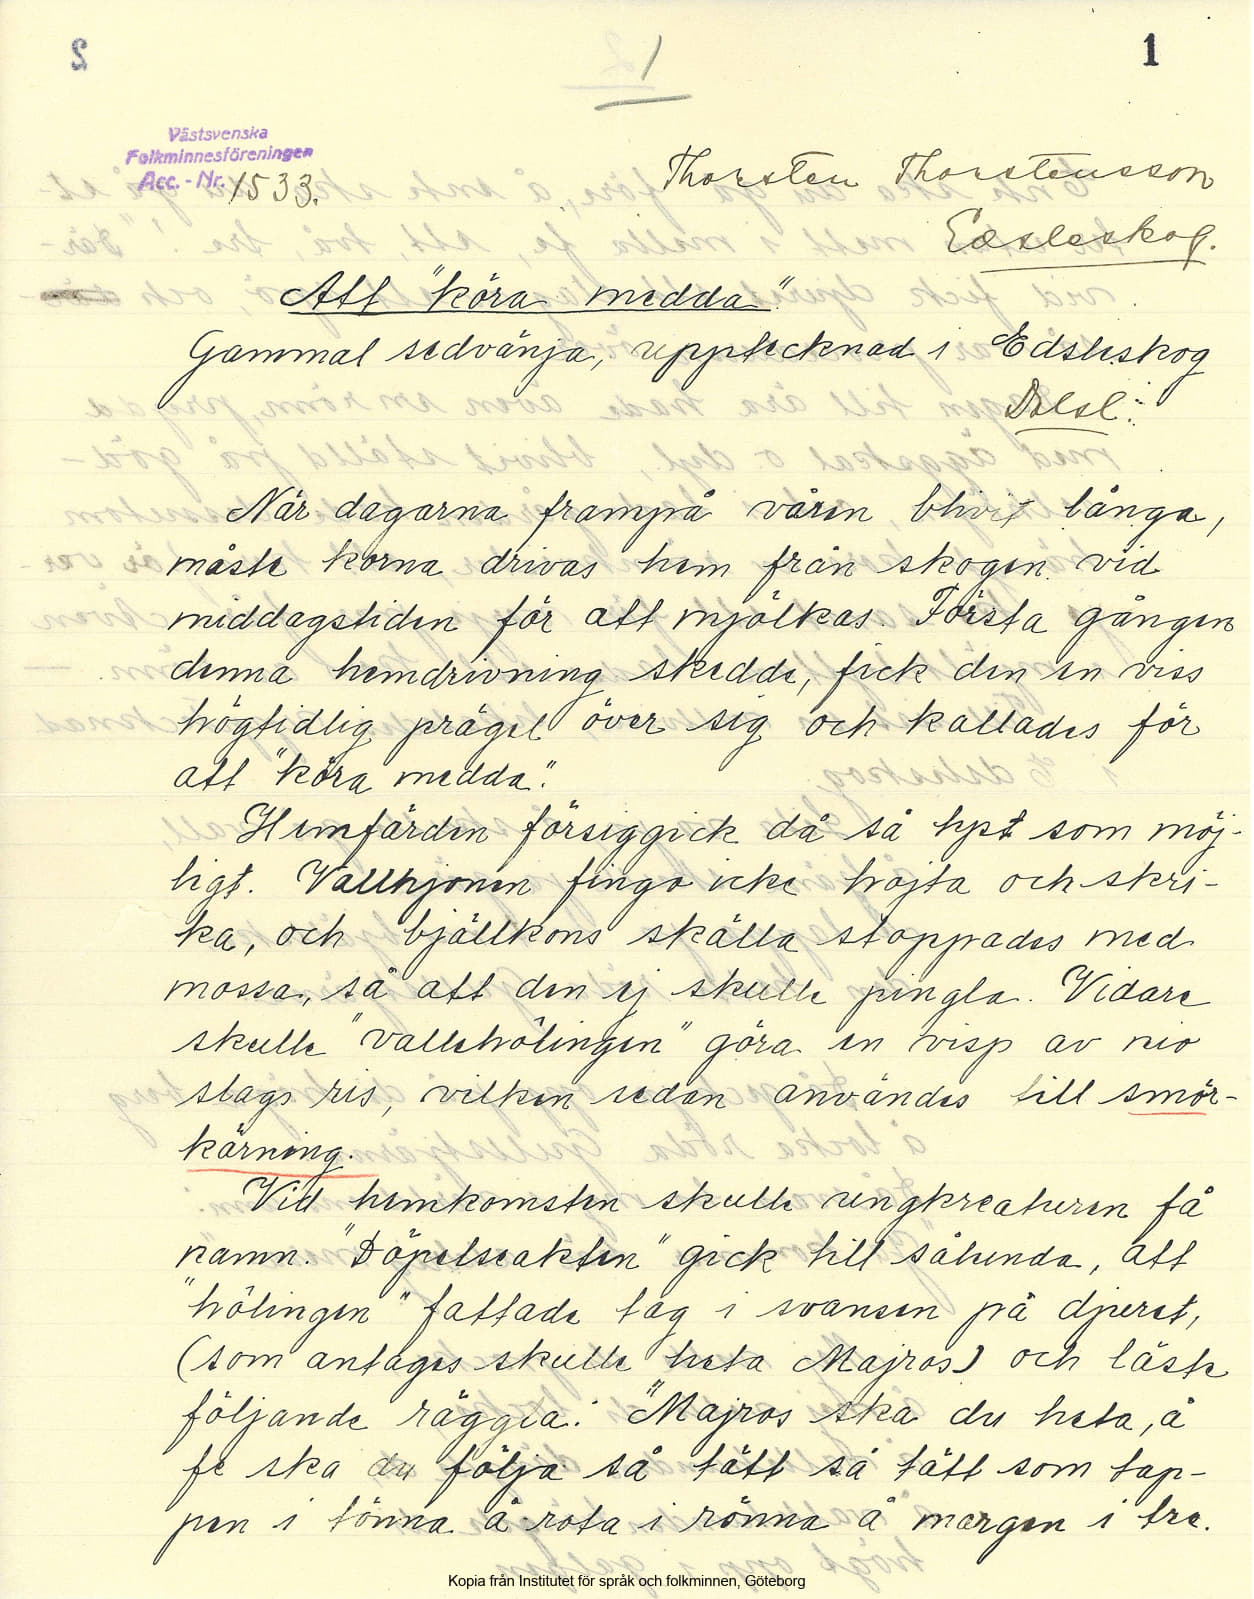 1
1
Västsvenska
Folkminnesföreningen
Acc.-Nr. 1533.
Thorsten Thorstensson
Edsleskog.
Att "köra medda"
Gammal sedvänja, upptecknad i Edsleskog
Dalsl:
När dagarna frampå våren blivit långa,
måste korna drivas hem från skogen vid
middagstiden för att mjölkas. Första gången
denna hemdrivning skedde, fick den en viss
högtidlig prägel över sig och kallades för
att "köra medda".
Hemfärden försiggick då så tyst som möj-
ligt. Vallhjonen fingo icke hojta och skri-
ka, och bjällkons skälla stoppades med
mossa, så att den ej skulle pingla. Vidare
skulle "vallehölingen" göra en visp av nio
slags ris, vilken sedan användes till smör-
kärning.
Vid hemkomsten skulle ungkreaturen få
namn. "Döpelseakten" gick till sålunda, att
"hölingen" fattade tag i svansen på djuret,
(som antages skulle heta Majros) och läste
följande räggla: "Majros ska du heta, å
fe ska du följa så tätt så tätt som tap-
pen i tönna å rota i rönna å margen i tre.
Kopia från Institutet för språk och folkminnen, Göteborg